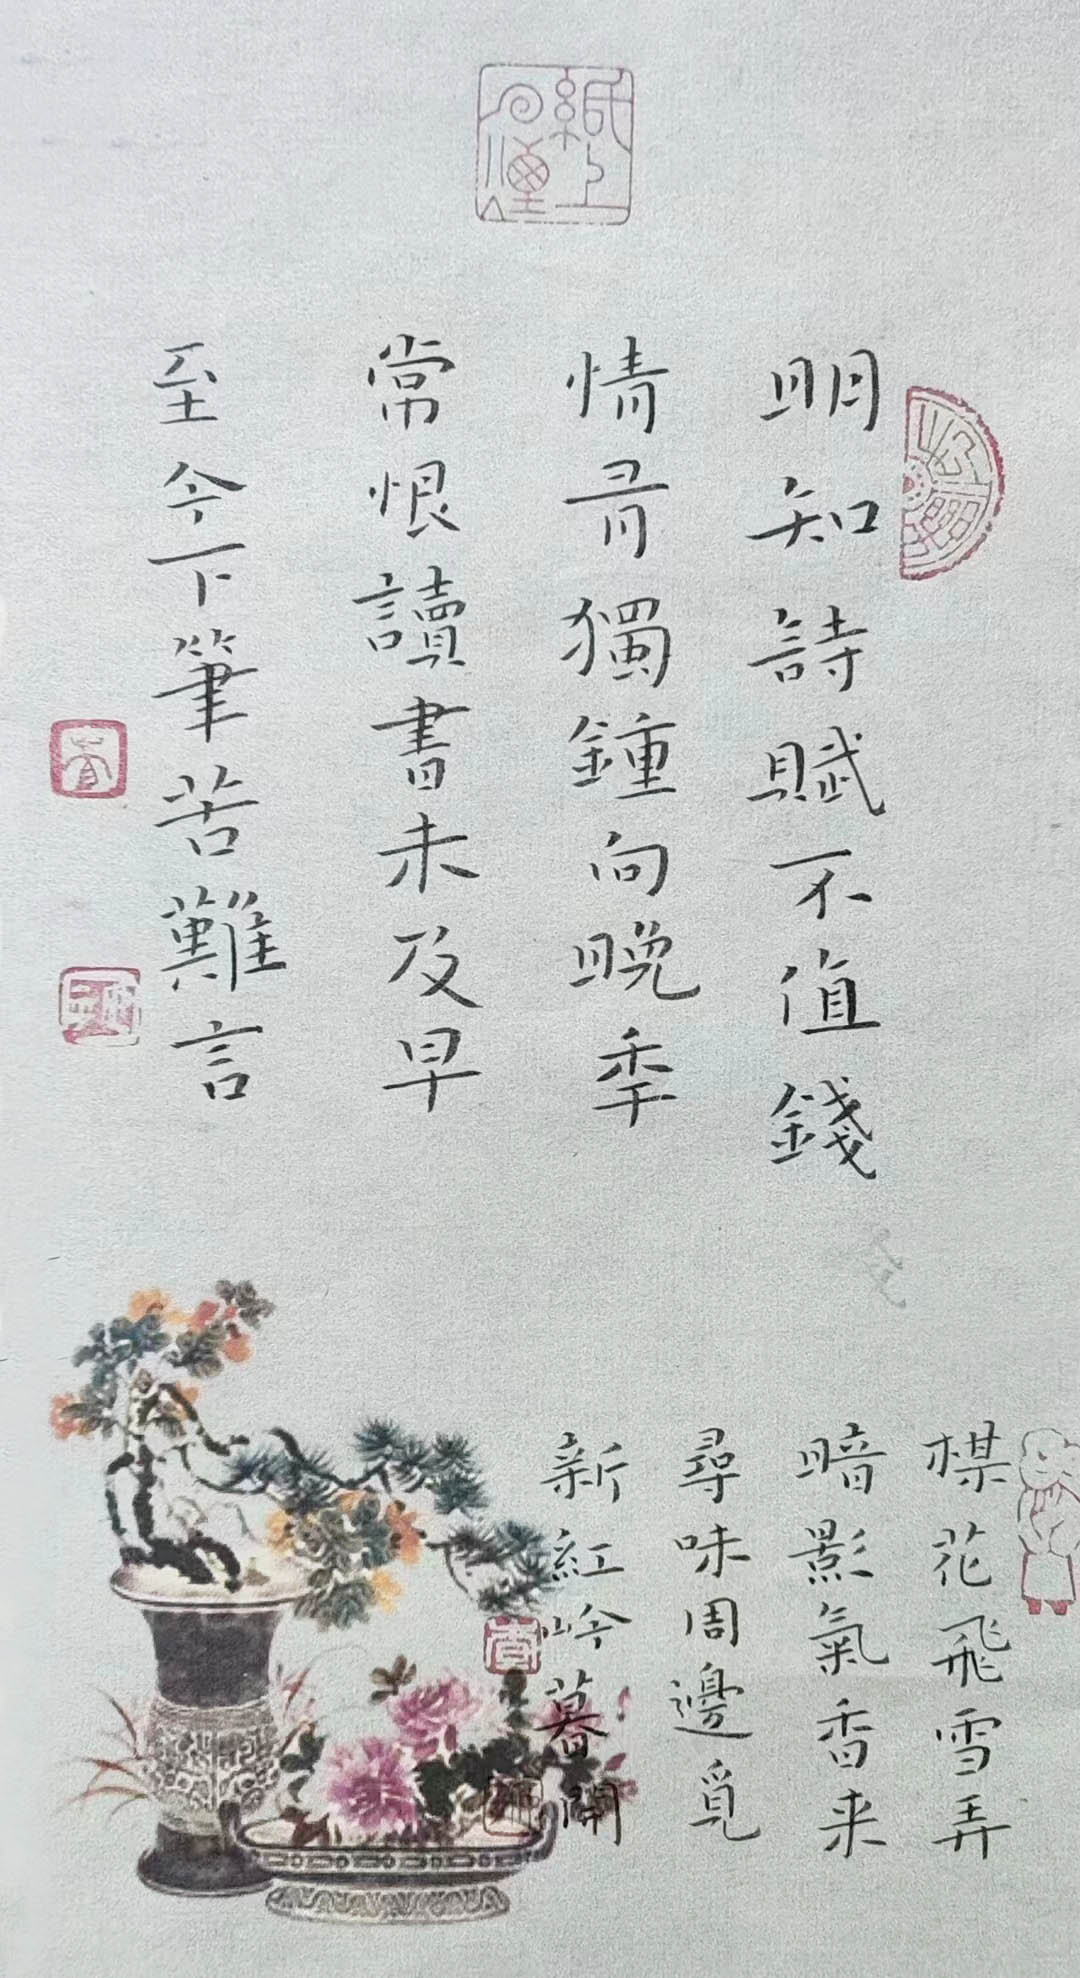 明知詩賦不值錢
情有獨鍾向晚年
常恨讀書未及早
至今下筆苦難言
棋花飛雪弄
暗影氣香来
尋味周邊覓
新紅吟暮開